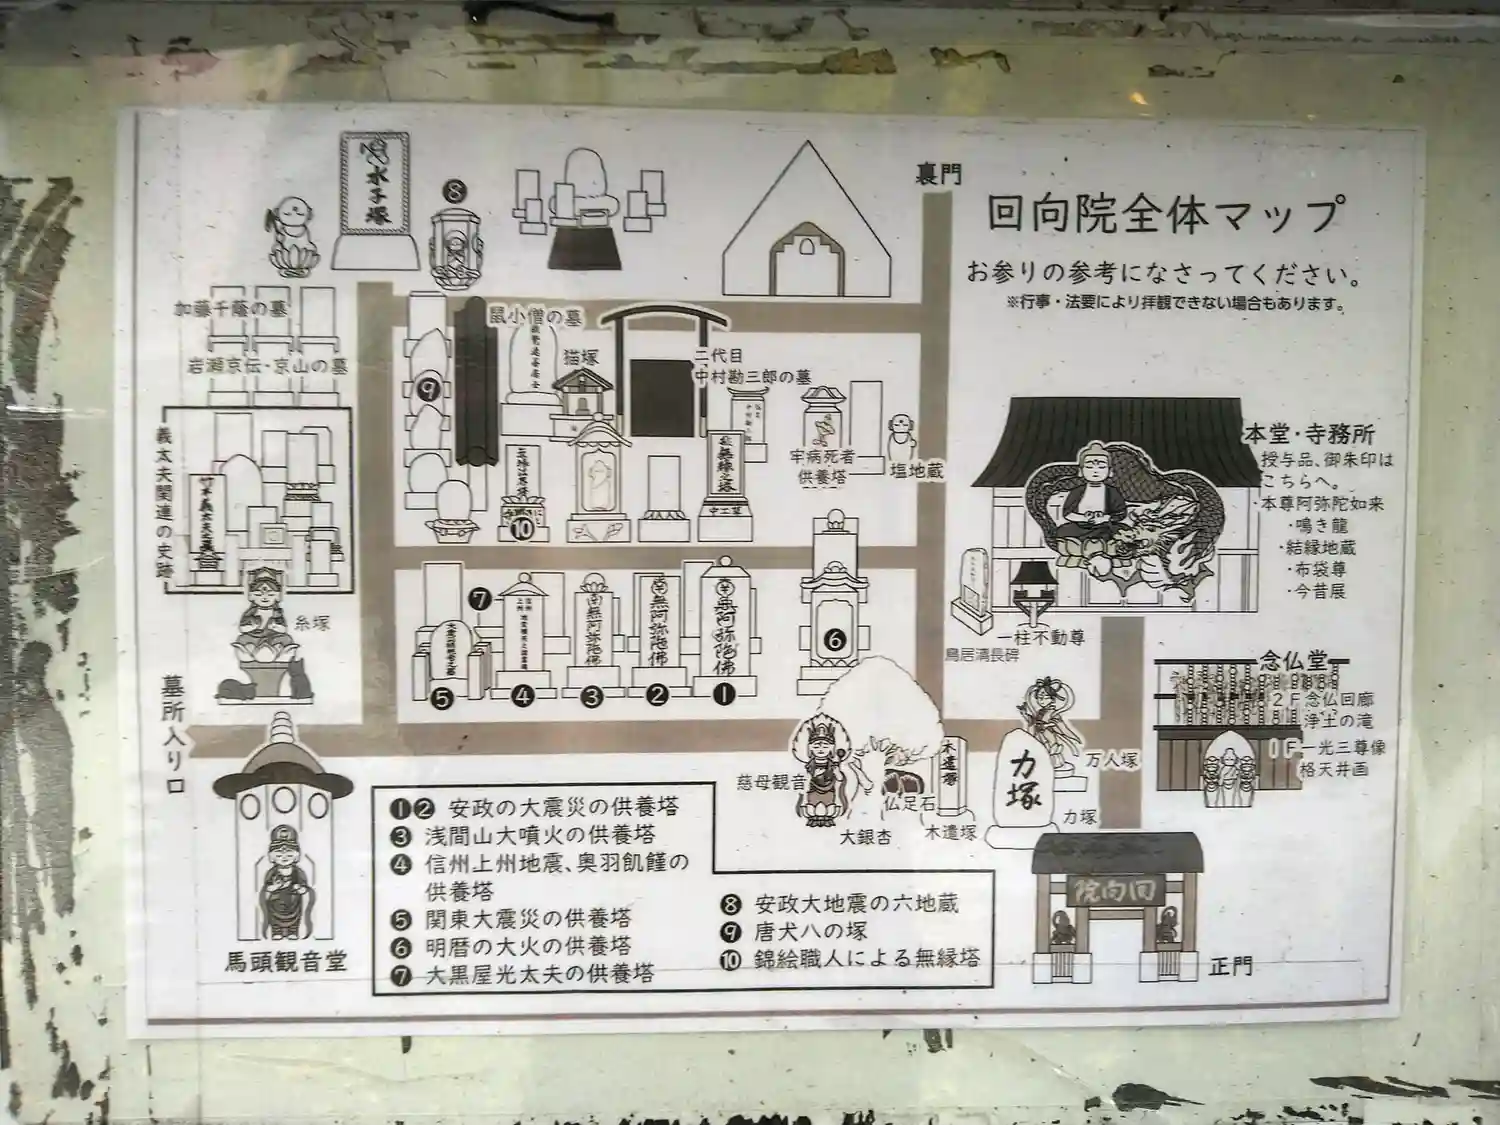 裏門
回向院全体マップ
お参りの参考になさってください。
※行事・法要により拝観できない場合もあります。
水子塚
❽
加藤千蔭の墓
岩瀬京伝・京山の墓
鼠小僧の墓
猫塚
二代目
中村勘三郎の墓
❾
牢病死者
供養塔
塩地蔵
❿
義太夫関連の史跡
竹本義太夫之墓
糸塚
本堂・寺務所
授与品、御朱印は
こちらへ。
・本尊阿弥陀如来
・鳴き龍
・結縁地蔵
・布袋尊
・今昔展
一柱不動尊
鳥居清長碑
❼
南無阿弥陀佛
南無阿弥陀佛
南無阿弥陀佛
❺
❹
❸
❷
❶
❻
念仏堂
2F念仏回廊
浄土の滝
1F一光三尊像
格天井画
墓所入り口
慈母観音
大銀杏
仏足石
木遣塚
木遣塚
力塚
力塚
万人塚
回向院
正門
馬頭観音堂
❶❷ 安政の大震災の供養塔
❸ 浅間山大噴火の供養塔
❹ 信州上州地震、奥羽飢饉の
供養塔
❺ 関東大震災の供養塔
❻ 明暦の大火の供養塔
❼ 大黒屋光太夫の供養塔
❽ 安政大地震の六地蔵
❾ 唐犬八の塚
❿ 錦絵職人による無縁塔